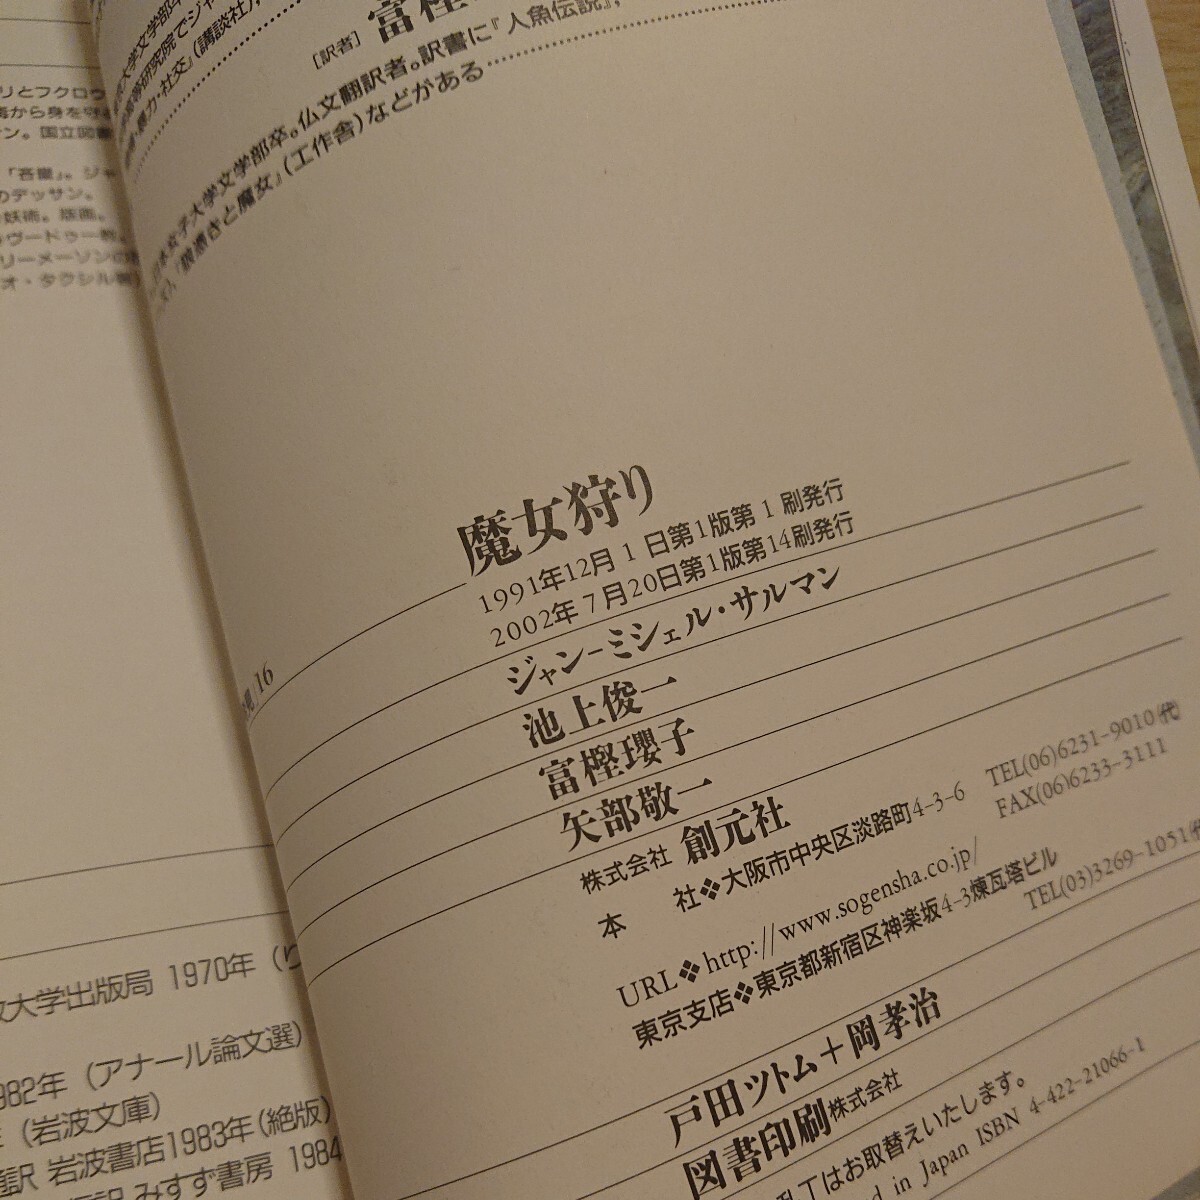 リとフクロウ
から身を守
ン。国立図書
「吝嗇」。ジャ
のデッサン。
妖術。版画。
ヴードゥー教。
リーメーソンの
オ・タクシル
大学文学部卒
高等研究院でジャ
暴力・社交』(講談社)、
[訳者]
富樫
女子大学文学部卒。仏文翻訳者。訳書に『人魚伝説』、
『狼憑きと魔女』(工作舎)などがある
16
魔女狩り
1991年12月1日第1版第1刷発行
2002年7月20日第1版第14刷発行
ジャン-ミシェル・サルマン
池上俊一
富樫瓔子
矢部敬一
株式会社 創元社
本 社❖大阪市中央区淡路町4-3-6
TEL(06)6231-9010(代)
FAX(06)6233-3111
URL❖http://www.sogensha.co.jp/
東京支店❖東京都新宿区神楽坂4-3煉瓦塔ビル
TEL(03)3269-1051(代
戸田ツトム+岡孝治
図書印刷株式会社
乱丁はお取替えいたします。
ed in Japan ISBN 4-422-21066-1
大学出版局 1970年(り
982年(アナール論文選)
(岩波文庫)
訳 岩波書店1983年(絶版)
訳 みすず書房 1984